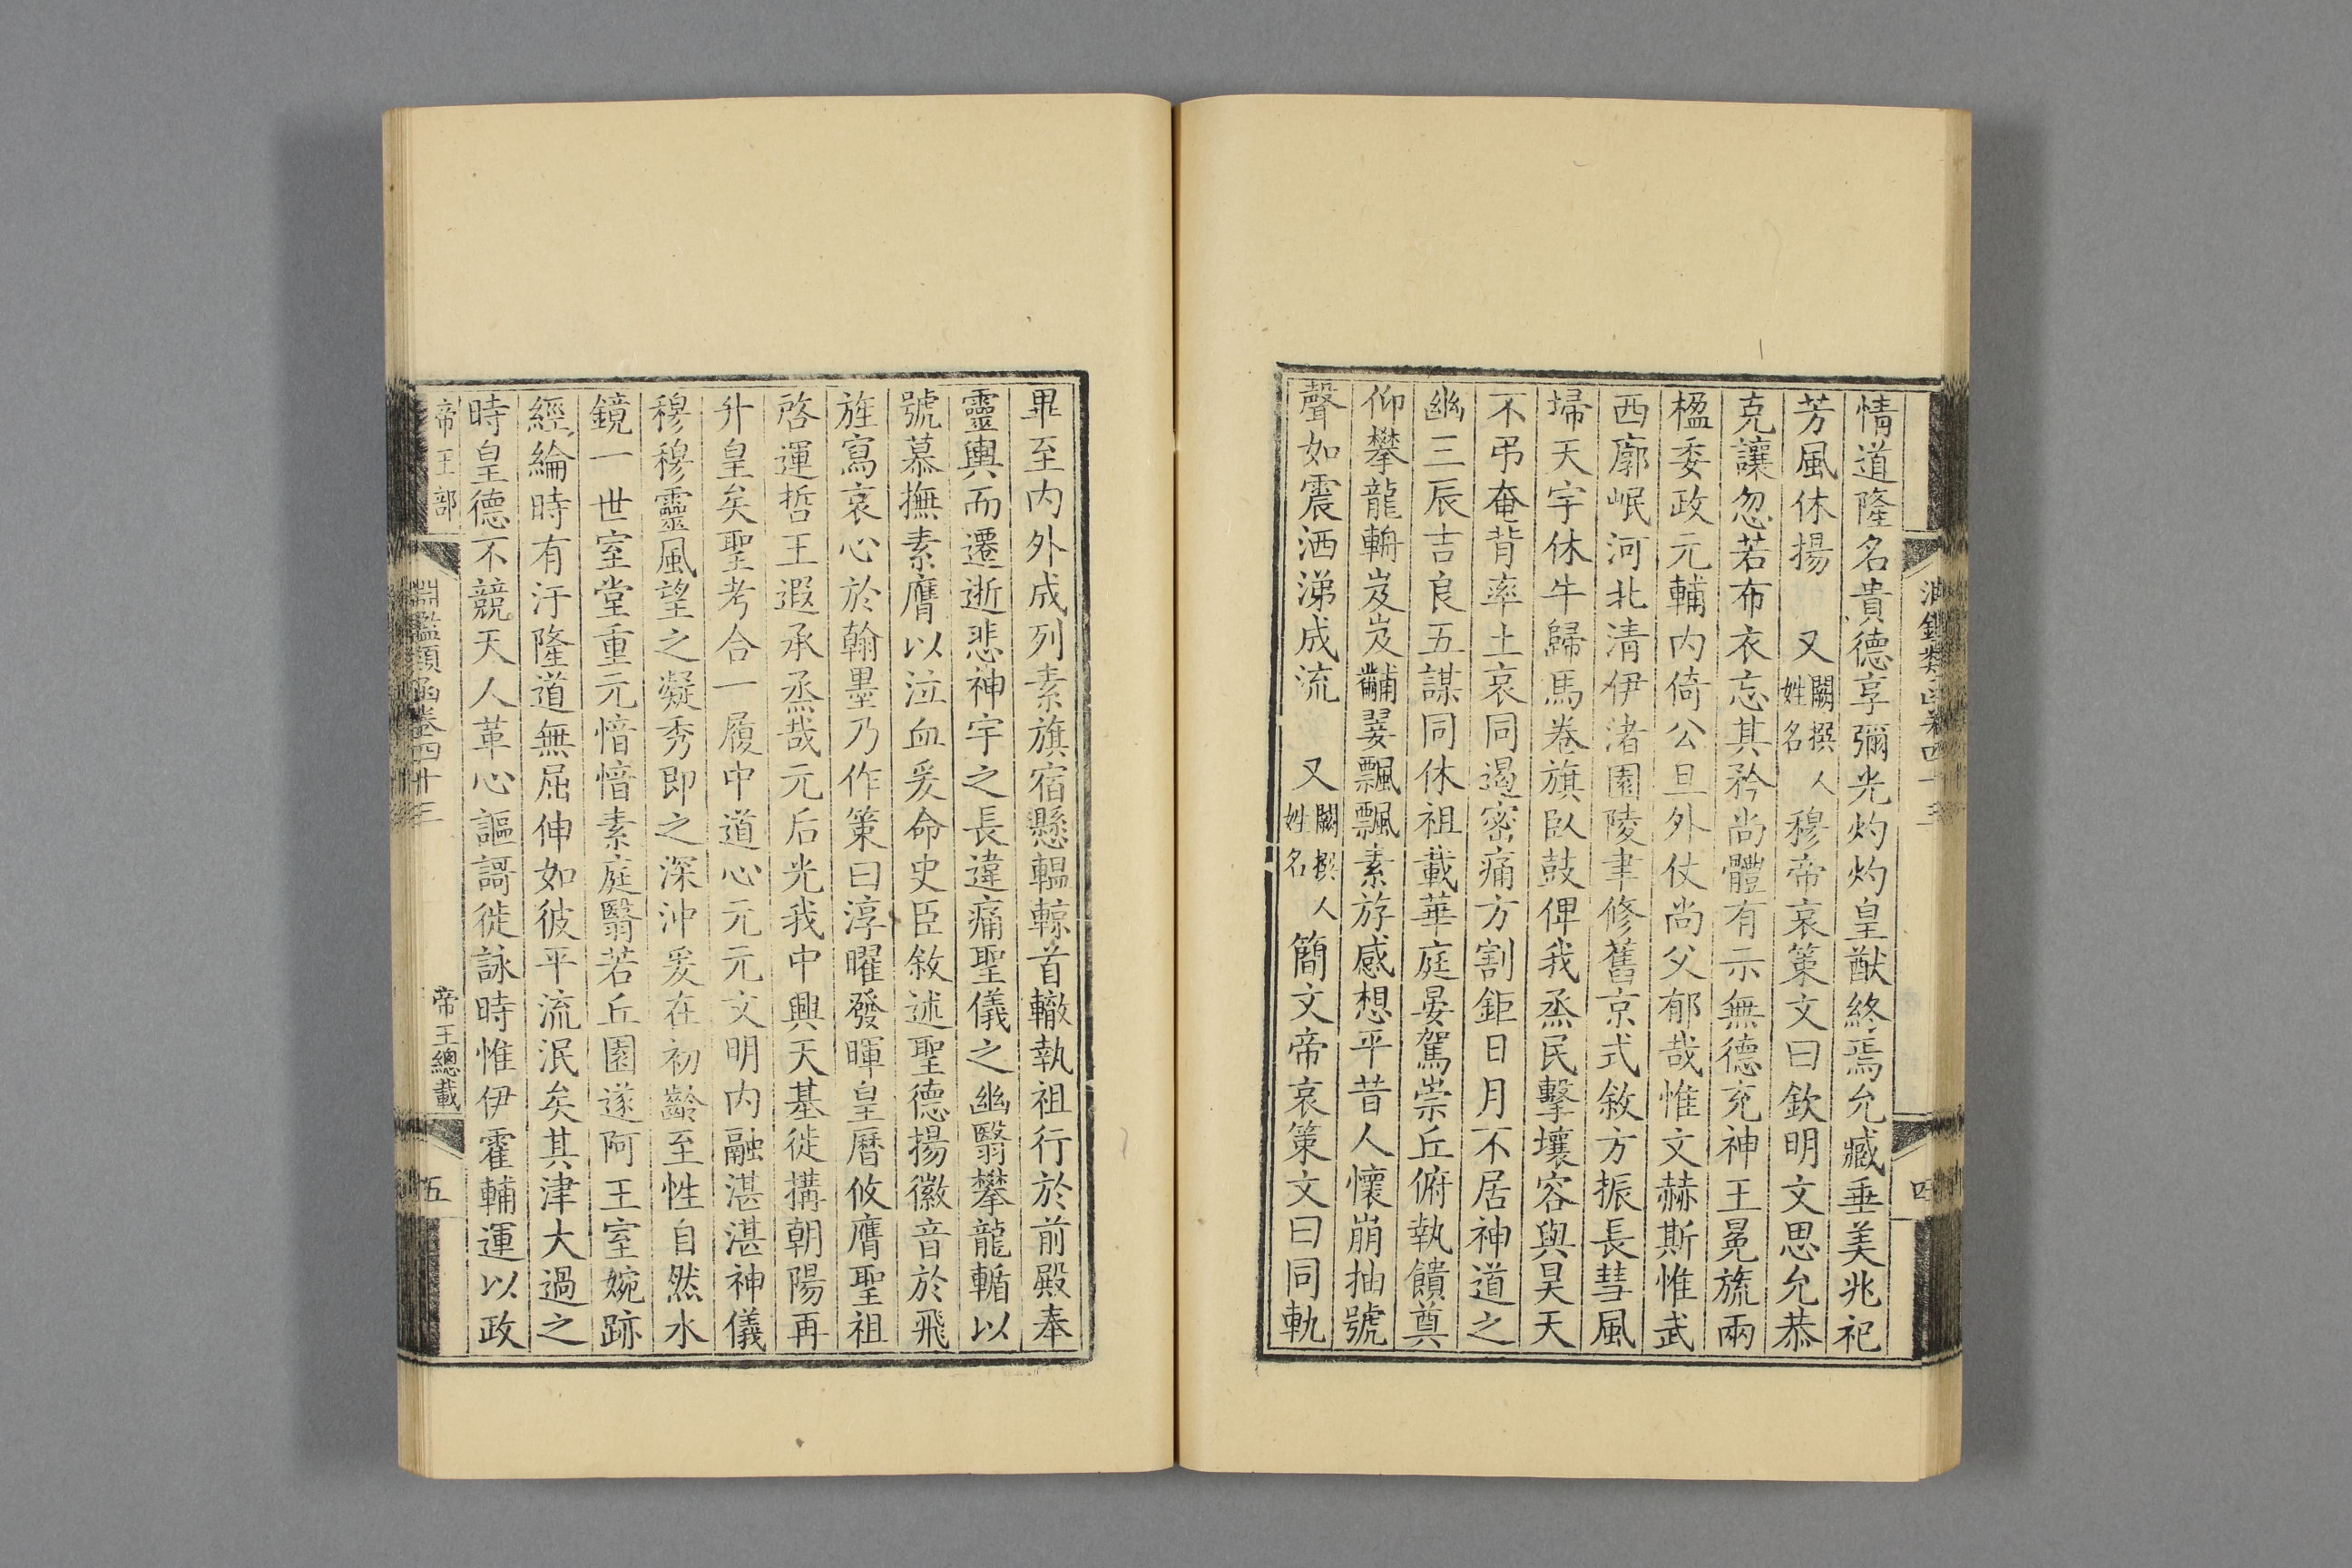 情道隆名貴德享彌光灼灼皇猷終焉允臧垂美兆祀
芳風休揚　又闕撰人姓名穆帝哀策文曰欽明文思允恭
克讓忽若布衣忘其矜尚體有示無德充神王冕旒兩
楹委政元輔内倚公旦外仗尚父郁哉惟文赫斯惟武
西廓岷河北清伊渚園陵聿修舊京式敘方振長彗風
埽天宇休牛歸馬卷旗臥鼓俾我烝民擊壤容與昊天
不弔奄背率土哀同遏密痛方割鉅日月不居神道之
幽三辰吉良五謀同休祖載華庭晏駕崇丘俯執饋奠
仰攀龍輈岌岌黼翣飄飄素斿感想平昔人懷崩抽號
聲如震洒涕成流　又闕撰人姓名簡文帝哀策文曰同軌
畢至内外成列素旗宿懸輼輬首轍執祖行於前殿奉
靈輿而遷逝悲神宇之長違痛聖儀之幽翳攀龍輴以
號慕撫素膺以泣血爰命史臣敘述聖德揚徽音於飛
旌寫哀心於翰墨乃作策曰淳曜發暉皇曆攸膺聖祖
啓運哲王遐承烝哉元后光我中興天基徙搆朝陽再
升皇矣聖考合一履中道心元元文明内融湛湛神儀
穆穆靈風望之凝秀即之深沖爰在初齡至性自然水
鏡一世室堂重元愔愔素庭翳若丘園遂阿王室婉跡
經綸時有汙隆道無屈伸如彼平流泯矣其津大過之
時皇德不競天人革心謳謌徙詠時惟伊霍輔運以政
帝王部
淵鑑類函卷四十三
帝王總載
五